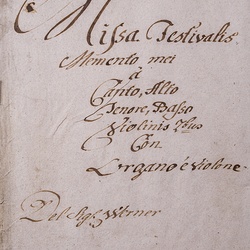 Missa Festivalis
Memento mei
à
Canto, Alto
Tenore, Basso
Violinis 2bus
Con
Organo è Violone.
Del Sigr Werner